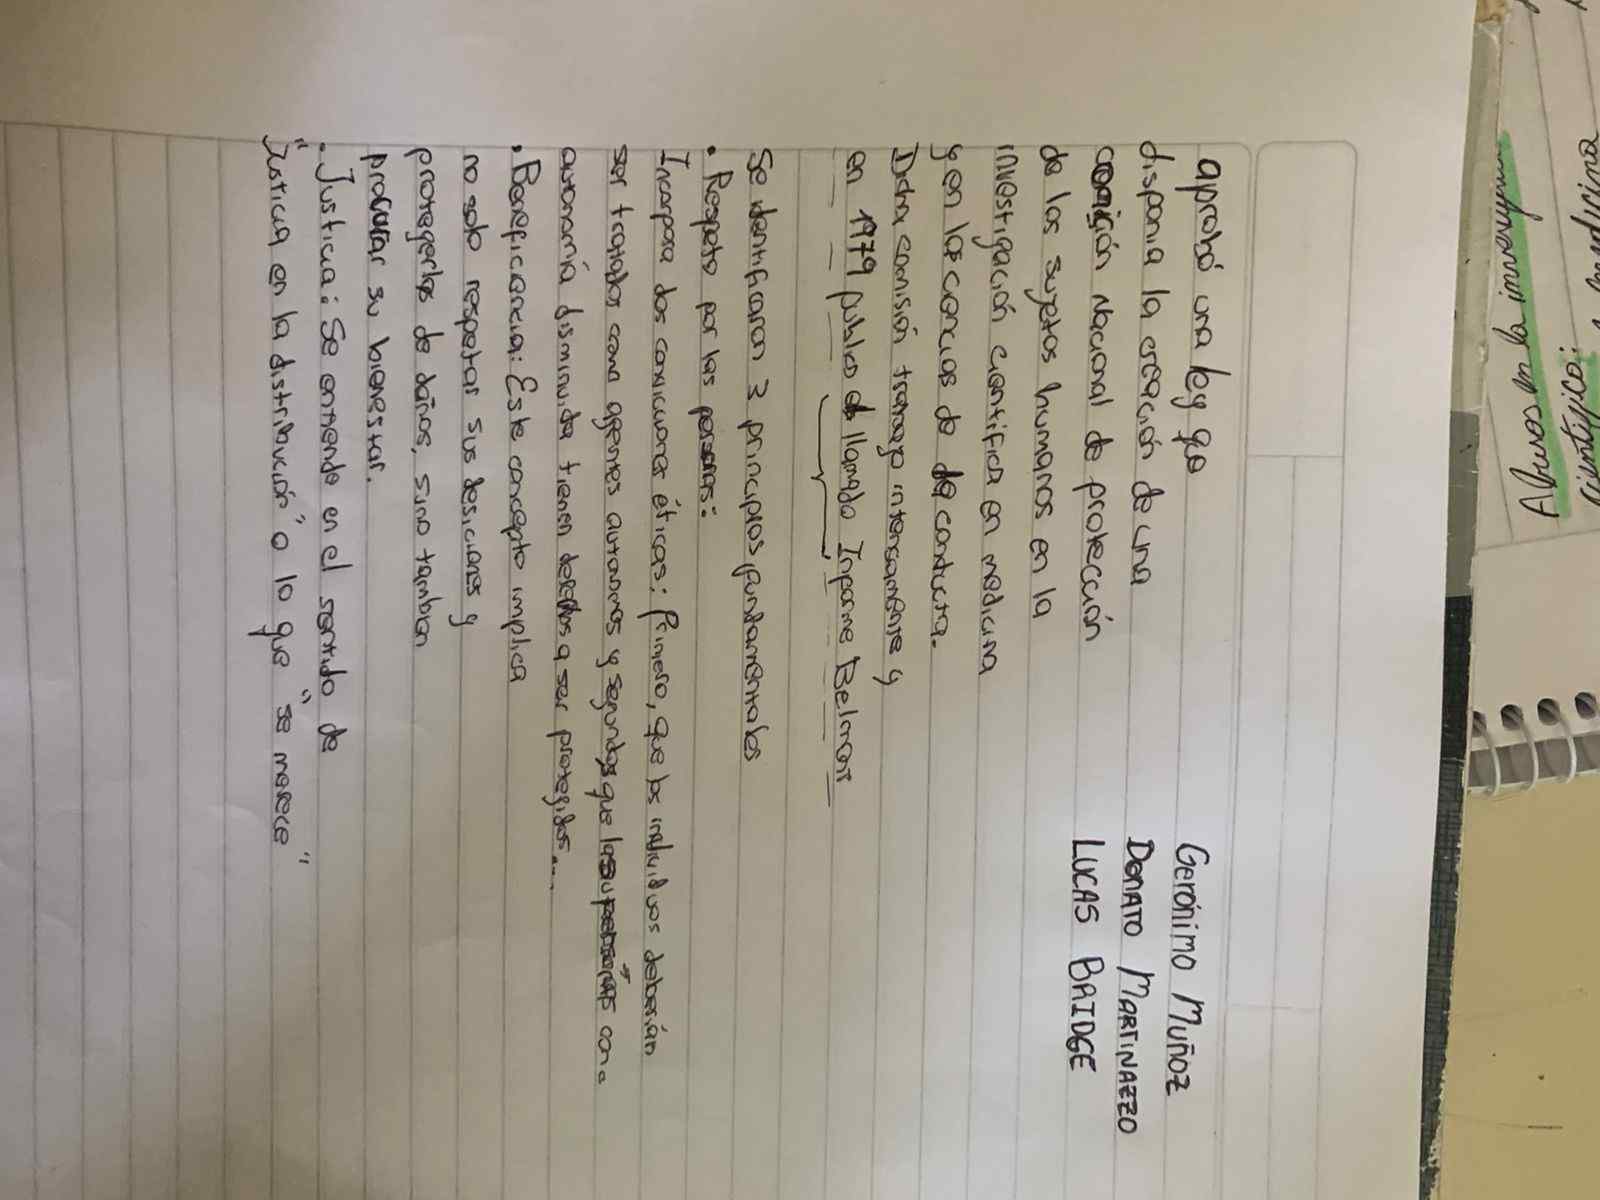 aprobó una ley qe
disponia la creación de una
comición Nacional de protección
de los sujetos humanos en la
investigación cientifica en medicina
y en las ciencias de la conducta.
Dicha comisión trabajo intensamente y
en 1979 publico el llamado Informe Belmont
Se identificaron 3 principios fundamentales
• Respeto por las personas:
Incorpora dos convicciones éticas: Primero, que los individuos deberián
ser tratados como agentes autonomos y segundos que las personas con
autonomía disminuida tienen derechos a ser protegidos...
• Beneficiencia: Este concepto implica
no solo respetar sus desiciones y
protegerlos de daños, sino tambien
procurar su bienestar.
• Justicia: Se entiende en el sentido de
"Justicia en la distribución" o lo que "se merece"
Gerónimo Muñoz
DONATO MARTINAZZO
LUCAS BRIDGE
Abusos en la
científica:
medicina